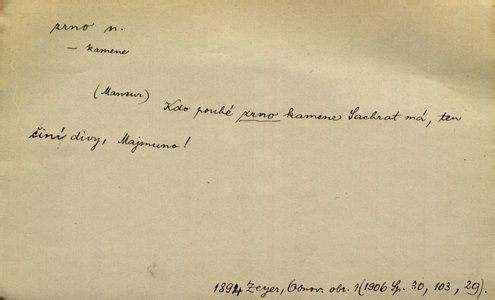 zrno n.
– kamene
(Mansur)
Kdo pouhé zrno kamene Sachrat má, ten
činí divy, Majmuno!
1894 Zeyer, Obnov. obr. 1 (1906 Sp. 30, 103, 29).